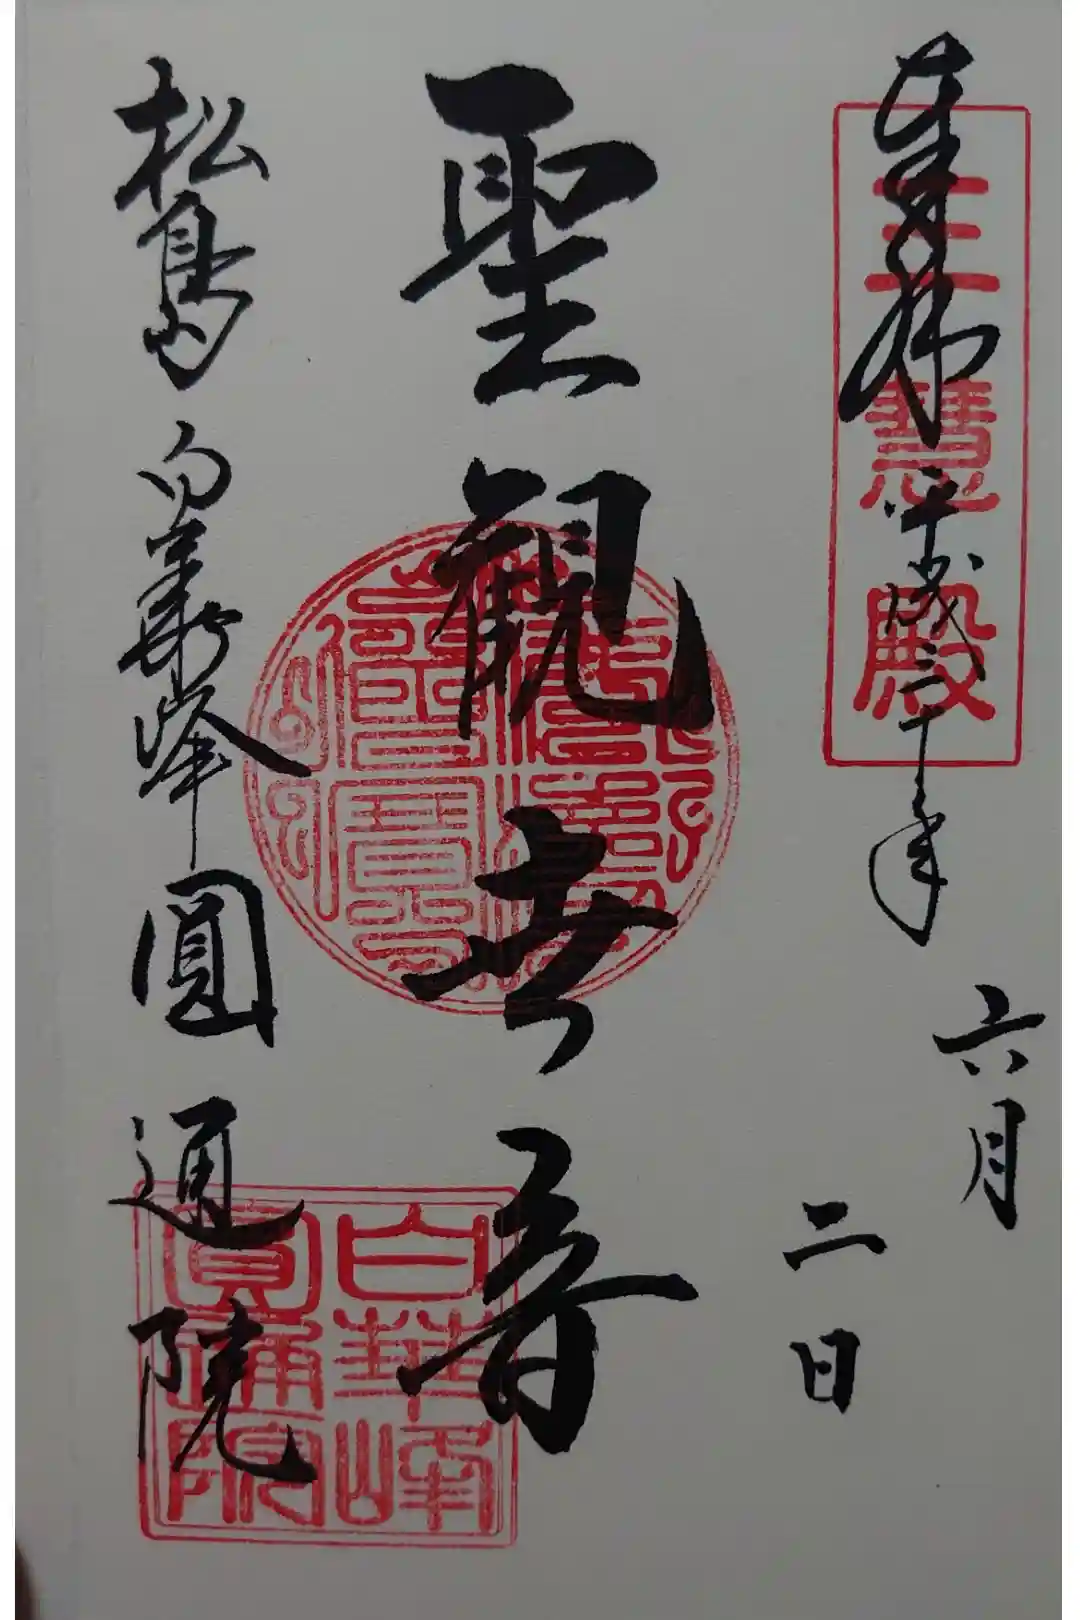 奉拝
三慧殿
平成三十年
六月
二日
聖観世音
松島
白華峰
圓
通
院
白華峰
圓通院